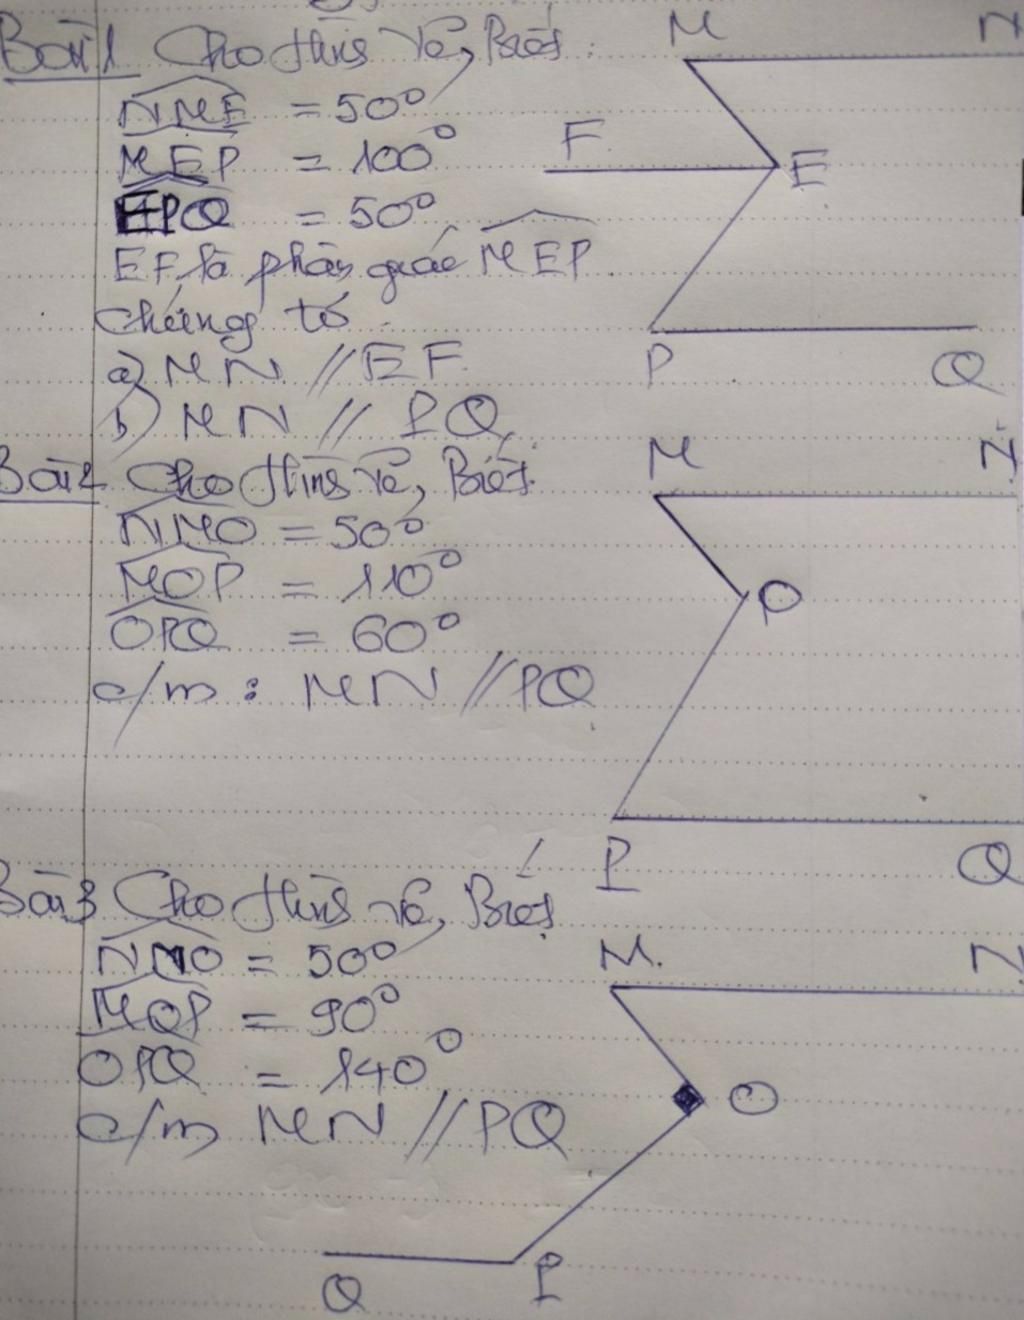 Bài 1 Cho hình vẽ, Biết:
NME = 50°
MEP = 100°
EPQ = 50°
EF là phân giác MEP
Chứng tỏ
a) MN // EF
b) MN // PQ
M
N
F
E
P
Q
Bài 2 Cho hình vẽ, Biết
NMO = 50°
MOP = 110°
OPQ = 60°
c/m : MN // PQ
M
N
O
P
Q
Bài 3 Cho hình vẽ, Biết
NMO = 50°
MOP = 90°
OPQ = 140°
c/m MN // PQ
M
N
O
Q
P